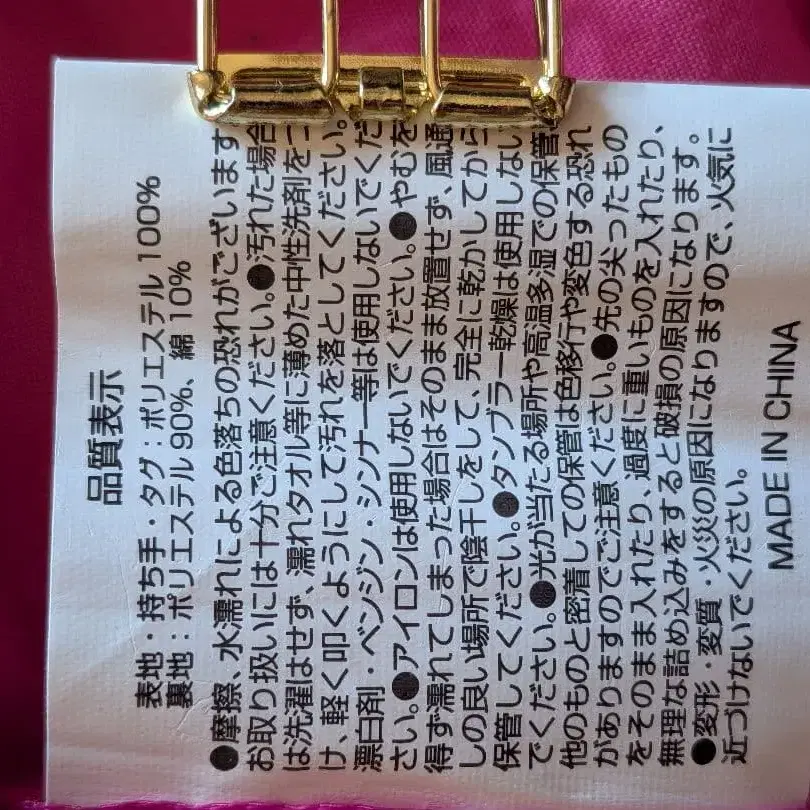 品質表示
表地・持ち手・タグ：ポリエステル 100%
裏地：ポリエステル 90%、綿 10%
●摩擦、水濡れによる色落ちの恐れがございます
お取り扱いには十分ご注意ください。●汚れた場合
は洗濯はせず、濡れタオル等に薄めた中性洗剤を
け、軽く叩くようにして汚れを落としてください。
漂白剤・ベンジン・シンナー等は使用しないでくだ
さい。●アイロンは使用しないでください。●やむを
得ず濡れてしまった場合はそのまま放置せず、風通
しの良い場所で陰干しをして、完全に乾かしてから
保管してください。●タンブラー乾燥は使用しない
でください。●光が当たる場所や高温多湿での保管
他のものと密着しての保管は色移行や変色する恐れ
がありますのでご注意ください。●先の尖ったもの
をそのまま入れたり、過度に重いものを入れたり、
無理な詰め込みをすると破損の原因になります。
●変形・変質・火災の原因になりますので、火気に
近づけないでください。
MADE IN CHINA